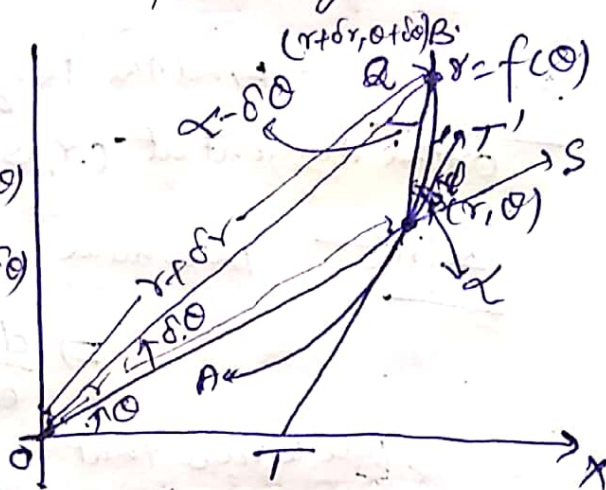 (r+δr, θ+δθ) B
Q
r=f(θ)
α-δθ
T'
S
θ)
ϕ
P(r, θ)
θ)
r+δr
α
δθ
r
A
θ
O
T
X